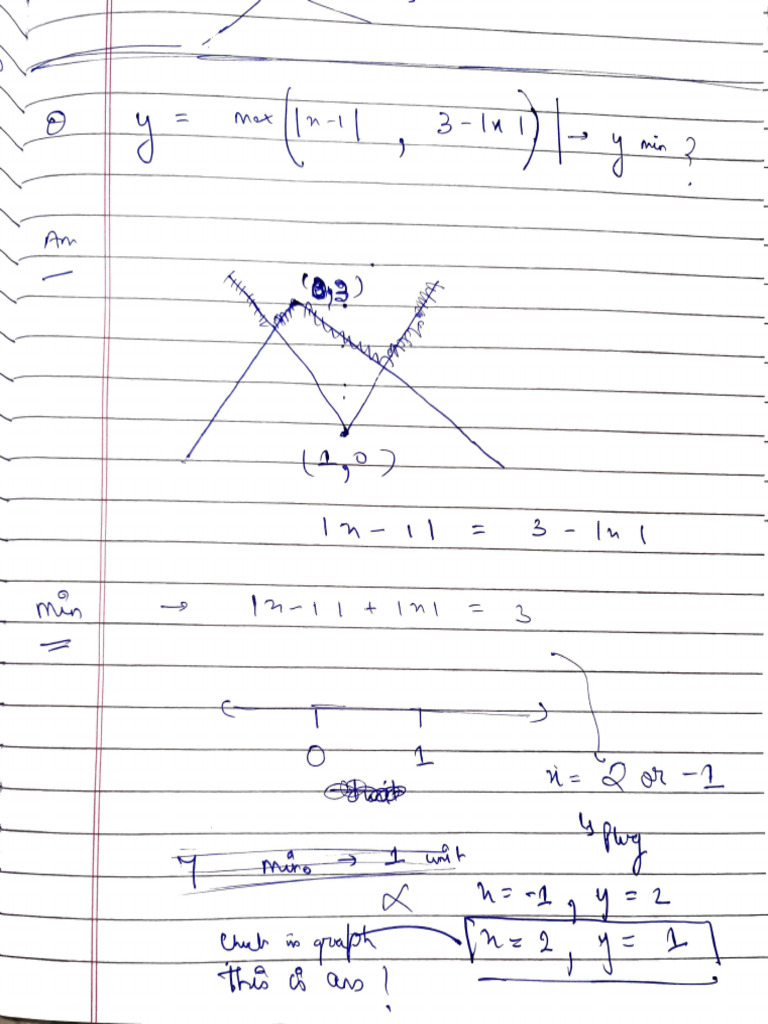 Q y = max(|x-1| , 3-|x|) | → y min ?
Ans
(0,3)
(1,0)
|x-1| = 3-|x|
min → |x-1| + |x| = 3
0 1
x = 2 or -1
↳ plug
min → 1 unit
x = -1 , y = 2
x = 2 , y = 1
in graph
this is ans !